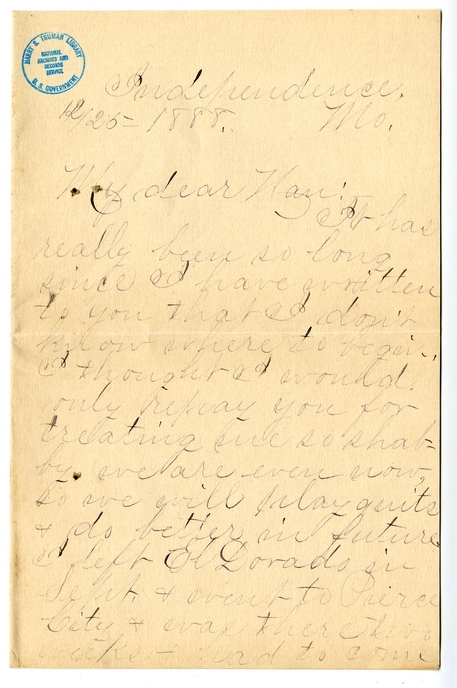 HARRY S. TRUMAN LIBRARY
NATIONAL
ARCHIVES AND
RECORDS
SERVICE
U. S. GOVERNMENT
Independence,
12/25-1888. Mo.
My dear Nan:
It has
really been so long
since I have written
to you that I don't
know where to begin.
I thought I would
only repay you for
treating me so shab-
by. we are even now,
so we will play quits
& do better in future
I left El Dorado in
Sept & went to Pierce
City & was there two
weeks & had to come